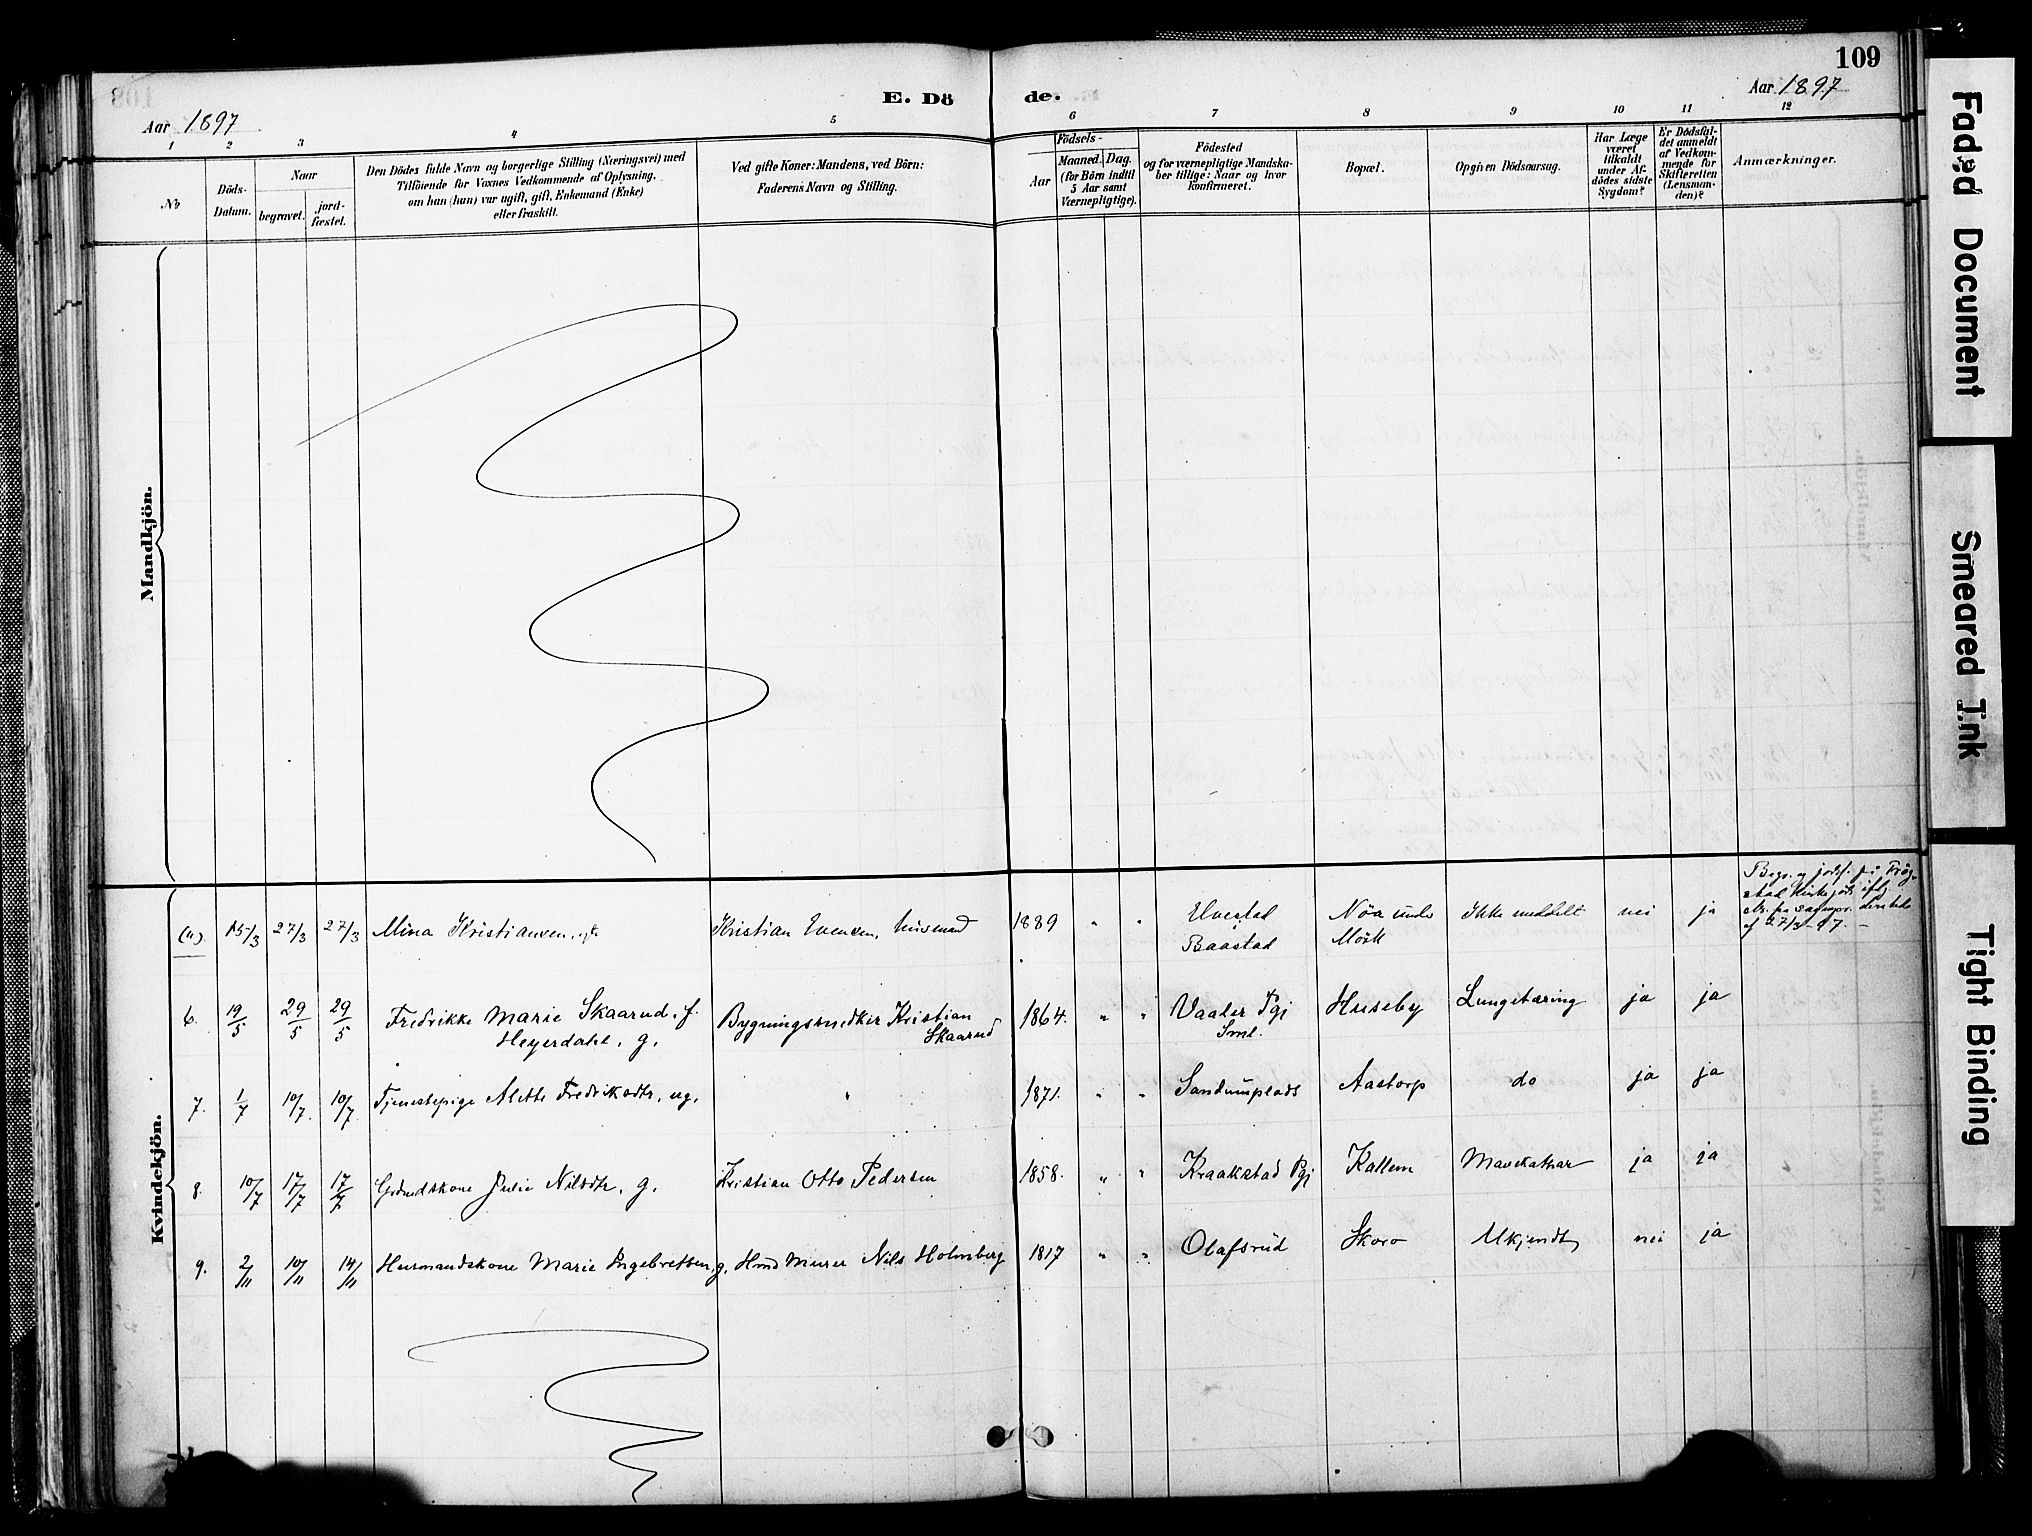 109
E. Dö de.
Aar 1897
Aar 1897
1 2 3 4 5 6 7 8 9 10 11 12
No
Döds-
Datum.
Naar
begravet.
jord-
fæstet.
Den Dödes fulde Navn og borgerlige Stilling (Næringsvei) med
Tilföiende for Voxnes Vedkommende af Oplysning,
om han (hun) var ugift, gift, Enkemand (Enke)
eller fraskilt.
Ved gifte Koner: Mandens, ved Börn:
Faderens Navn og Stilling.
Födsels-
Aar
Maaned. Dag.
(for Börn indtil
5 Aar samt
Værnepligtige).
Födested
og for værnepligtige Mandska-
ber tillige: Naar og hvor
konfirmeret.
Bopæl.
Opgiven Dödsaarsag.
Har Læge
været
tilkaldt
under Af-
dödes sidste
Sygdom?
Er Dödsfal-
det anmeldt
af Vedkom-
mende for
Skifteretten
(Lensman-
den)?
Anmærkninger.
Mandkjön.
Kvindekjön.
15/3 27/3 27/3 Mina Kristiansen, Kristian Evensen, husmand 1889 " " Elvestad
Baastad
Nöa under
Mörk
Ikke meddelt nei ja
Begr. og jordf. på Trög-
stad Kirkegård
27/3-97.
6. 19/5 29/5 29/5 Fredrikke Marie Skaarud, f.
Heyerdahl, g.
Bygningssnedker Kristian
Skaarud
1864. " " Vaaler Pgj
Sml.
Huseby Lungetæring ja ja
7. 1/7 10/7 10/7 Tjenestepige Alette Fredriksdtr, ug. " 1871. " " Sandumplads Aastorp do ja ja
8. 10/7 17/7 17/7 Grdmdskone Julie Nilsdtr, g. Kristian Otto Pedersen 1858. " " Kraakstad Pgj Kallem Mavekatar ja ja
9. 2/11 10/11 14/11 Husmandskone Marie Ingebretsen, g. Husmd Murer Nils Holmberg 1817 " " Olafsrud Skoro Ukjendt nei ja
Faded Document
Smeared Ink
Tight Binding